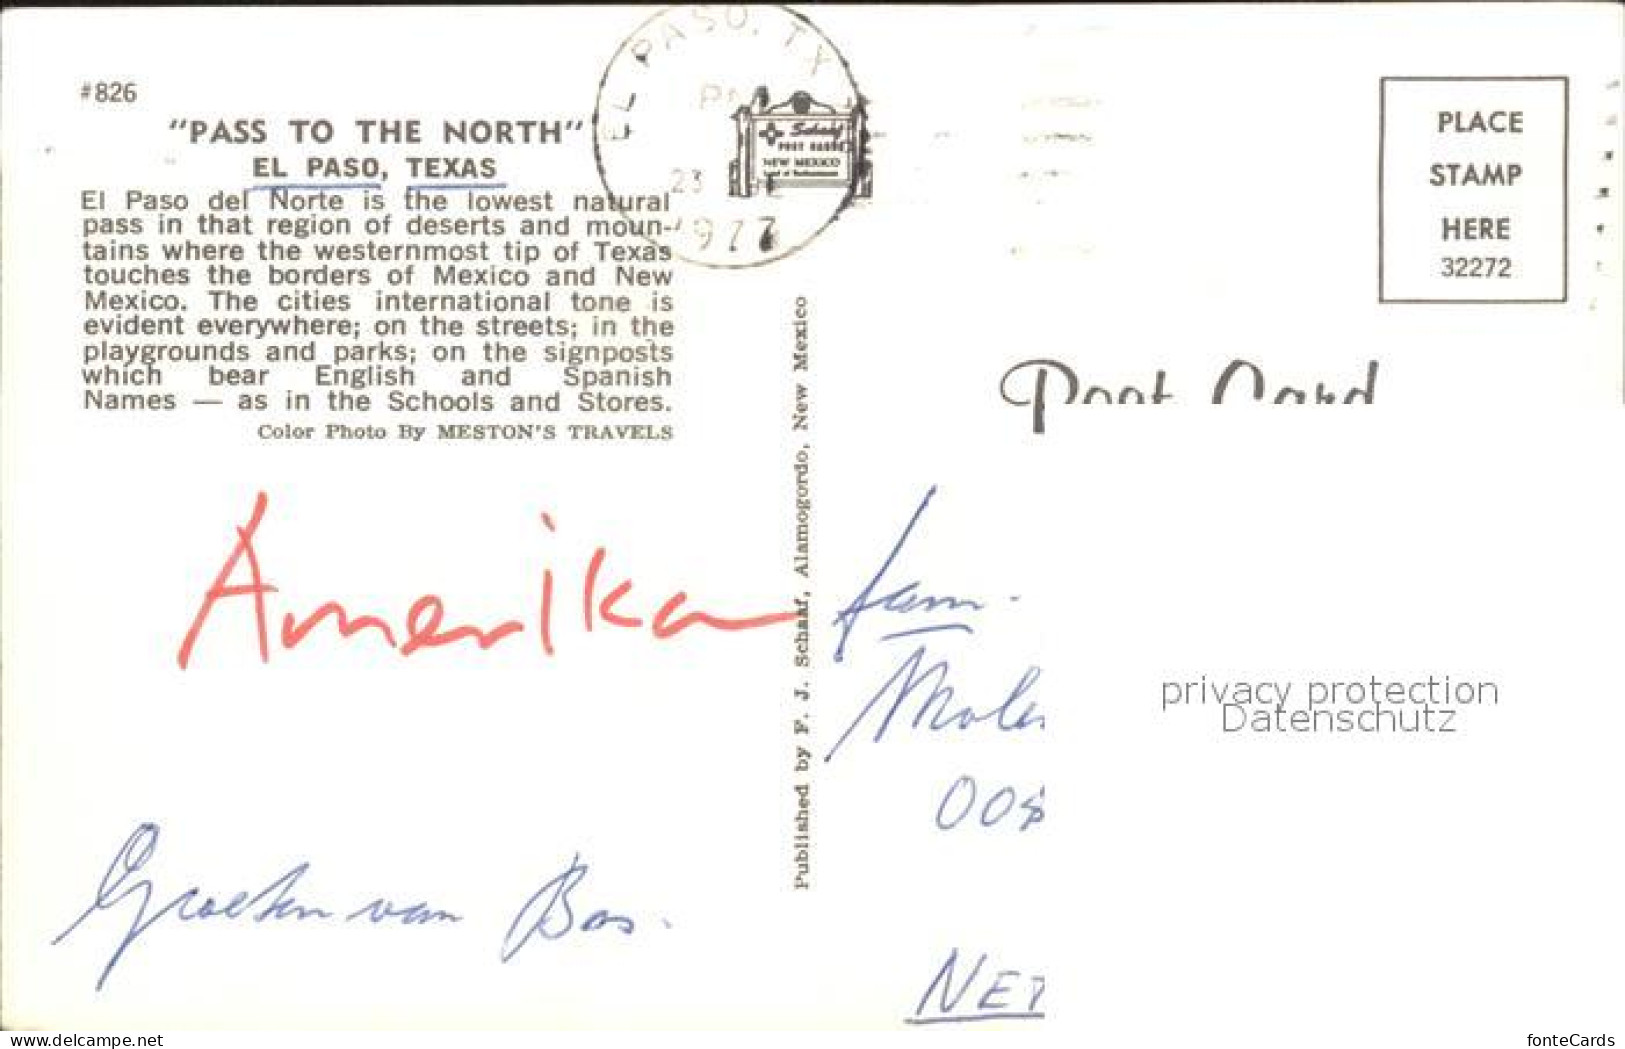 #826
"PASS TO THE NORTH"
EL PASO, TEXAS
El Paso del Norte is the lowest natural
pass in that region of deserts and moun-
tains where the westernmost tip of Texas
touches the borders of Mexico and New
Mexico. The cities international tone is
evident everywhere; on the streets; in the
playgrounds and parks; on the signposts
which bear English and Spanish
Names — as in the Schools and Stores.
Color Photo By MESTON'S TRAVELS
EL PASO, TX
PM
23
1977
Schaaf
POST CARDS
NEW MEXICO
Published by F. J. Schaaf, Alamogordo, New Mexico
PLACE
STAMP
HERE
32272
Post Card
Amerika
Groeten van Bas.
fam.
NET
privacy protection
Datenschutz
www.delcampe.net
fonteCards